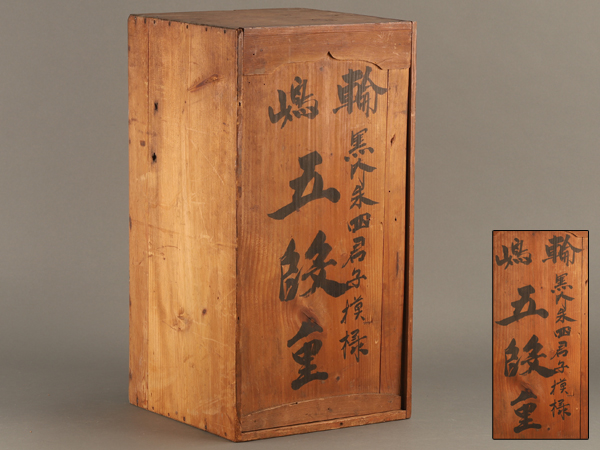 輪嶋
黒内朱四君子模様
五段重
輪嶋
黒内朱四君子模様
五段重